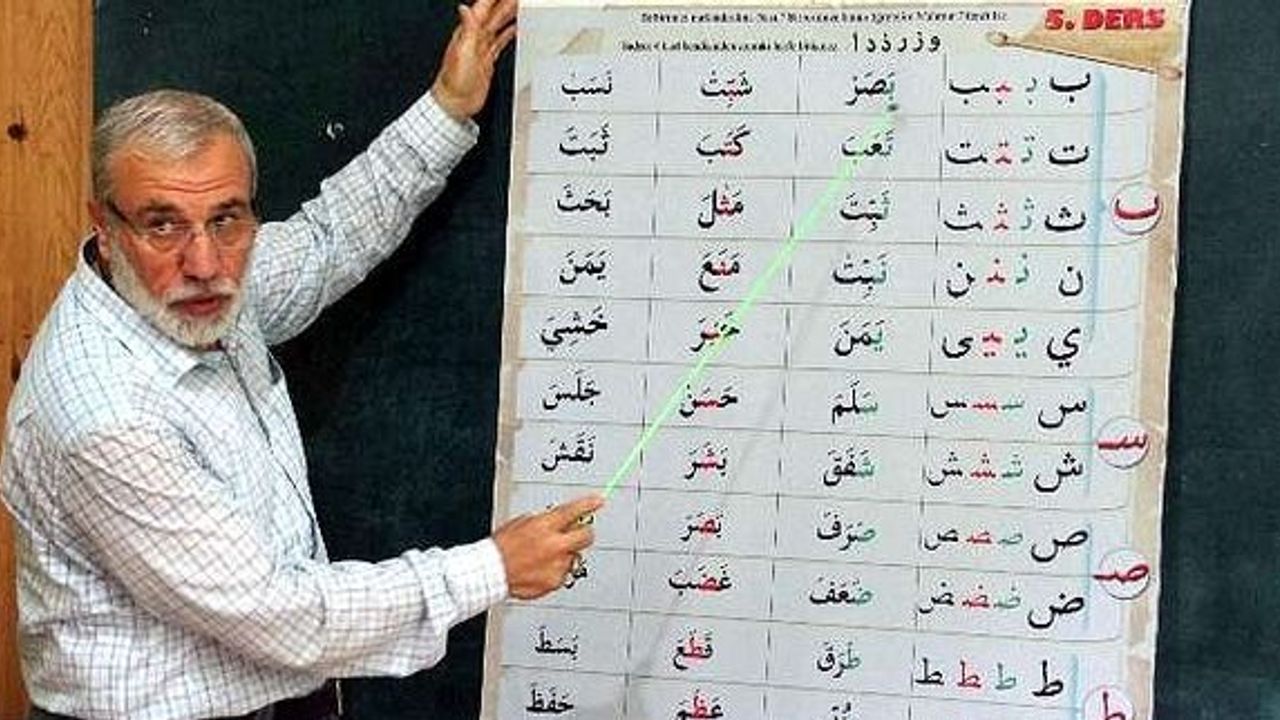 5. DERS
ا د ذ ر ز و
ب بـ ـبـ ـب بَصَرَ شَبَثَ نَسَبَ
ت تـ ـتـ ـت تَعَبَ كَتَبَ ثَبَتَ
ث ثـ ـثـ ـث ثَبِتَ مَثَلَ بَحَثَ
ن نـ ـنـ ـن نَبِتَ مَنَعَ يَمَنَ
ي يـ ـيـ ـى يَمَنَ خَشِيَ
س سـ ـسـ ـس سَلَمَ حَسَنَ جَلَسَ
ش شـ ـشـ ـش شَفَقَ بَشَرَ نَقَشَ
ص صـ ـصـ ـص صَرَفَ نَصَرَ
ض ضـ ـضـ ـض ضَعَفَ غَضَبَ
ط طـ ـطـ ـط طَرَقَ قَطَعَ بَسَطَ
عَظَمَ حَفَظَ
بـ
سـ
صـ
ط